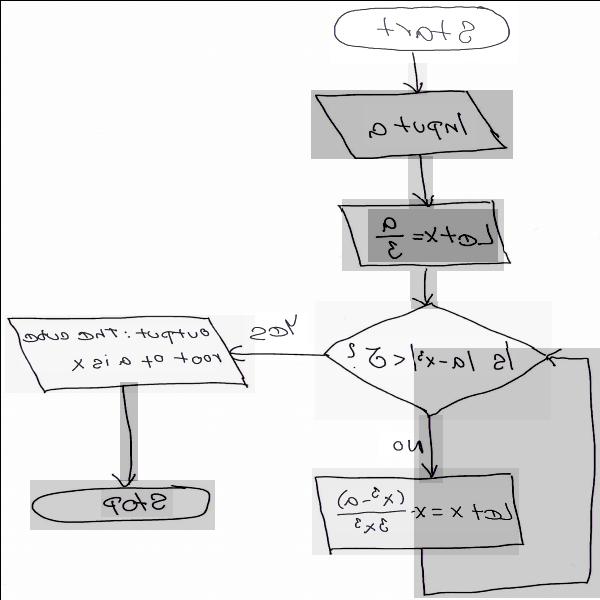 Start
Input a
Let x = a/3
Is |a-x³| < Σ ?
Yes
output: The cube
root of a is x
Stop
no
Let x = x - (x³-a)/3x³